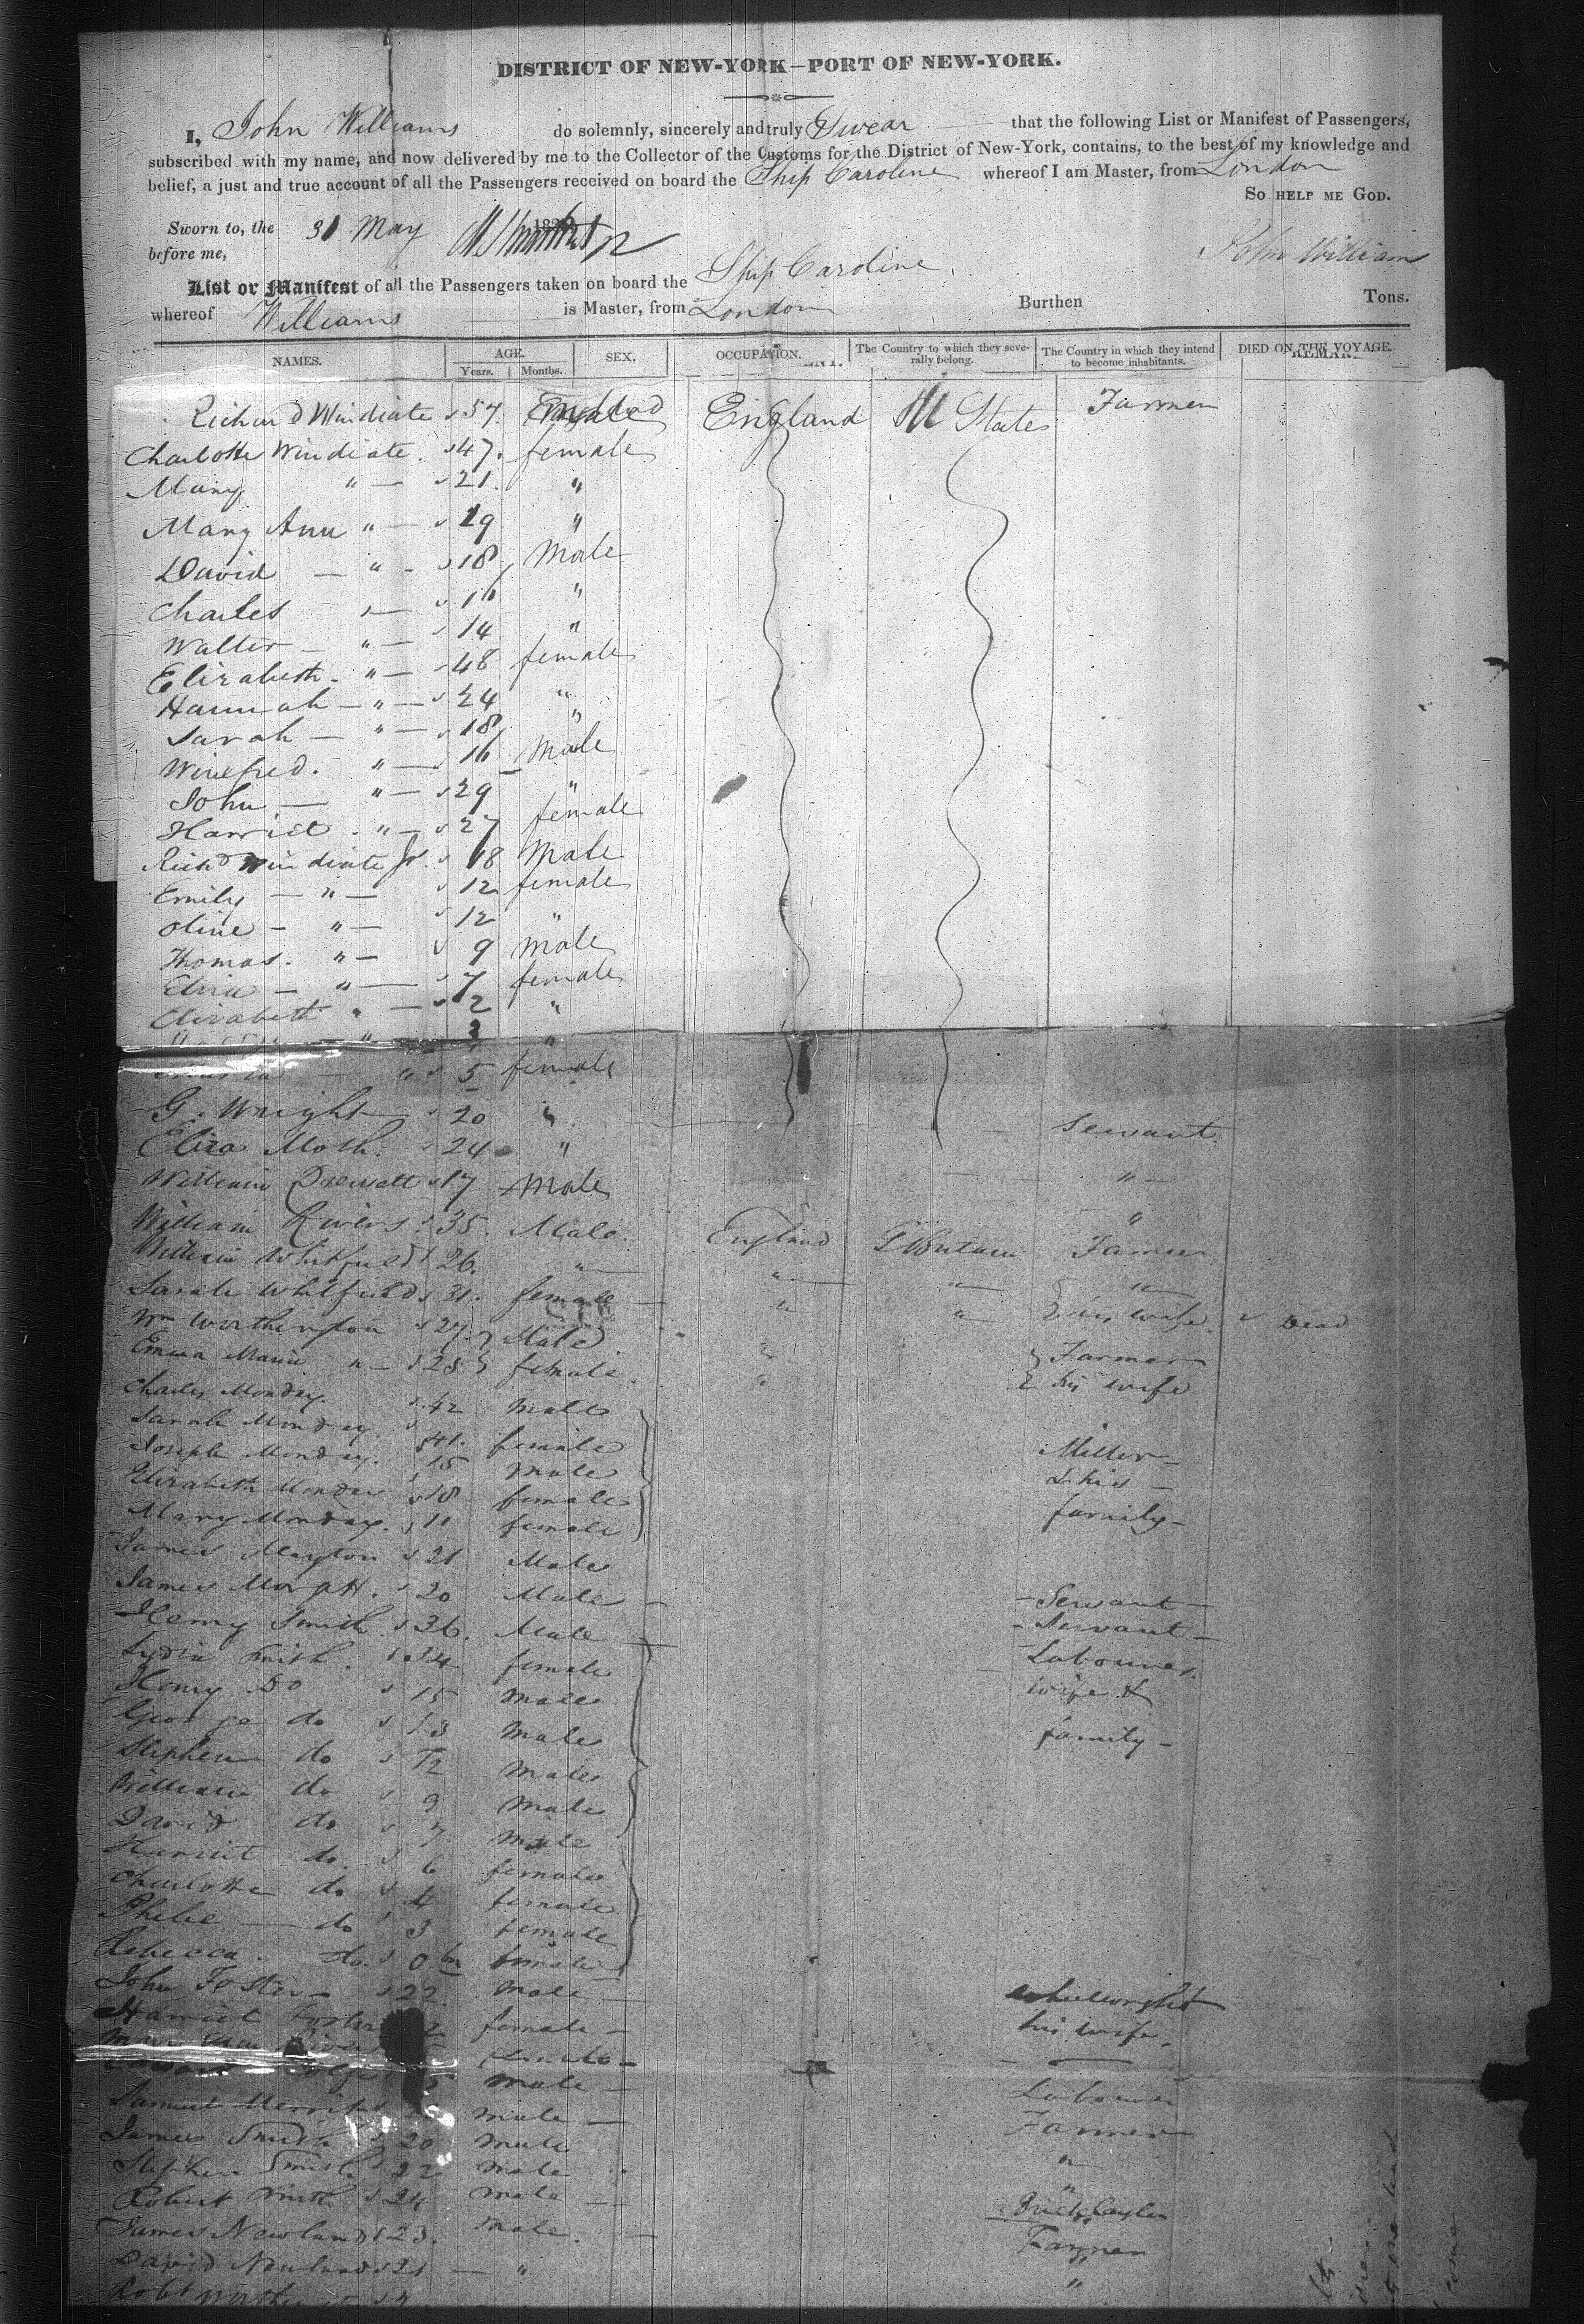 DISTRICT OF NEW-YORK—PORT OF NEW-YORK.
I, John Williams do solemnly, sincerely and truly Swear that the following List or Manifest of Passengers,
subscribed with my name, and now delivered by me to the Collector of the Customs for the District of New-York, contains, to the best of my knowledge and
belief, a just and true account of all the Passengers received on board the Ship Caroline whereof I am Master, from London
SO HELP ME GOD.
Sworn to, the 31 May 183
before me,
John Williams
List or Manifest of all the Passengers taken on board the Ship Caroline
whereof Williams is Master, from London Burthen Tons.
NAMES. AGE. SEX. OCCUPATION. The Country to which they severally belong. The Country in which they intend to become inhabitants. DIED ON THE VOYAGE.
Years. Months.
Richard Windiate 57 Male England U States Farmer
Charlotte Windiate 47 female
Mary " — 21 "
Mary Ann " — 19 "
David — " - 18 Male
Charles — 16 "
Walter — " — 14 "
Elizabeth - " — 48 female
Hannah — " — 24 "
Sarah — " — 18 "
Winefred. " — 16 Male
John — " — 29 "
Harriet . " — 27 female
Richd Windiate Jr. 18 Male
Emily — " — 12 female
Olive - " — 12 "
Thomas. " — 9 Male
— " — 7 female
Elizabeth " — 2 "
" 3 "
— " 5 female
G. Wright 20 " Servant
Eliza Moth. 24 "
William 17 Male " —
William Rivers 35. Male. England G Britain Farmer
William Whitfield 26. " " " "
Sarah Whitfield 31. female " " his wife. Dead
Wm Worthington 27. Male " Farmer
Emma Maria " — 28 female. " his wife
Charles Monday. 42 Male
Sarah Monday. 41. female Miller
Joseph Monday. 15 Male & his —
Elizabeth Monday 18 female family —
Mary Monday. 11 female
James 21 Male
James 20 Male — Servant —
Henry Smith 36. Male - Servant —
Lydia Smith. 34 female Labourer
Henry Do 15 Male wife &
George do 13 Male family —
Stephen do 12 Male
William do 9 Male
David do 7 Male
Harriet do. 6 female
Charlotte do 4 female
Phebe — do 3 female
Rebecca. do. 0 female
John Foster 22 Male — wheelwright
Harriet Foster female — his wife,
female —
Male — Labourer
Samuel Merritt Male — Farmer
James Smith 20 Male "
Stephen Smith 22 Male "
Robert Smith 24 Male — Bricklayer
James Newland 23. Male. — Farmer
David Newland 21 — " "
Robt